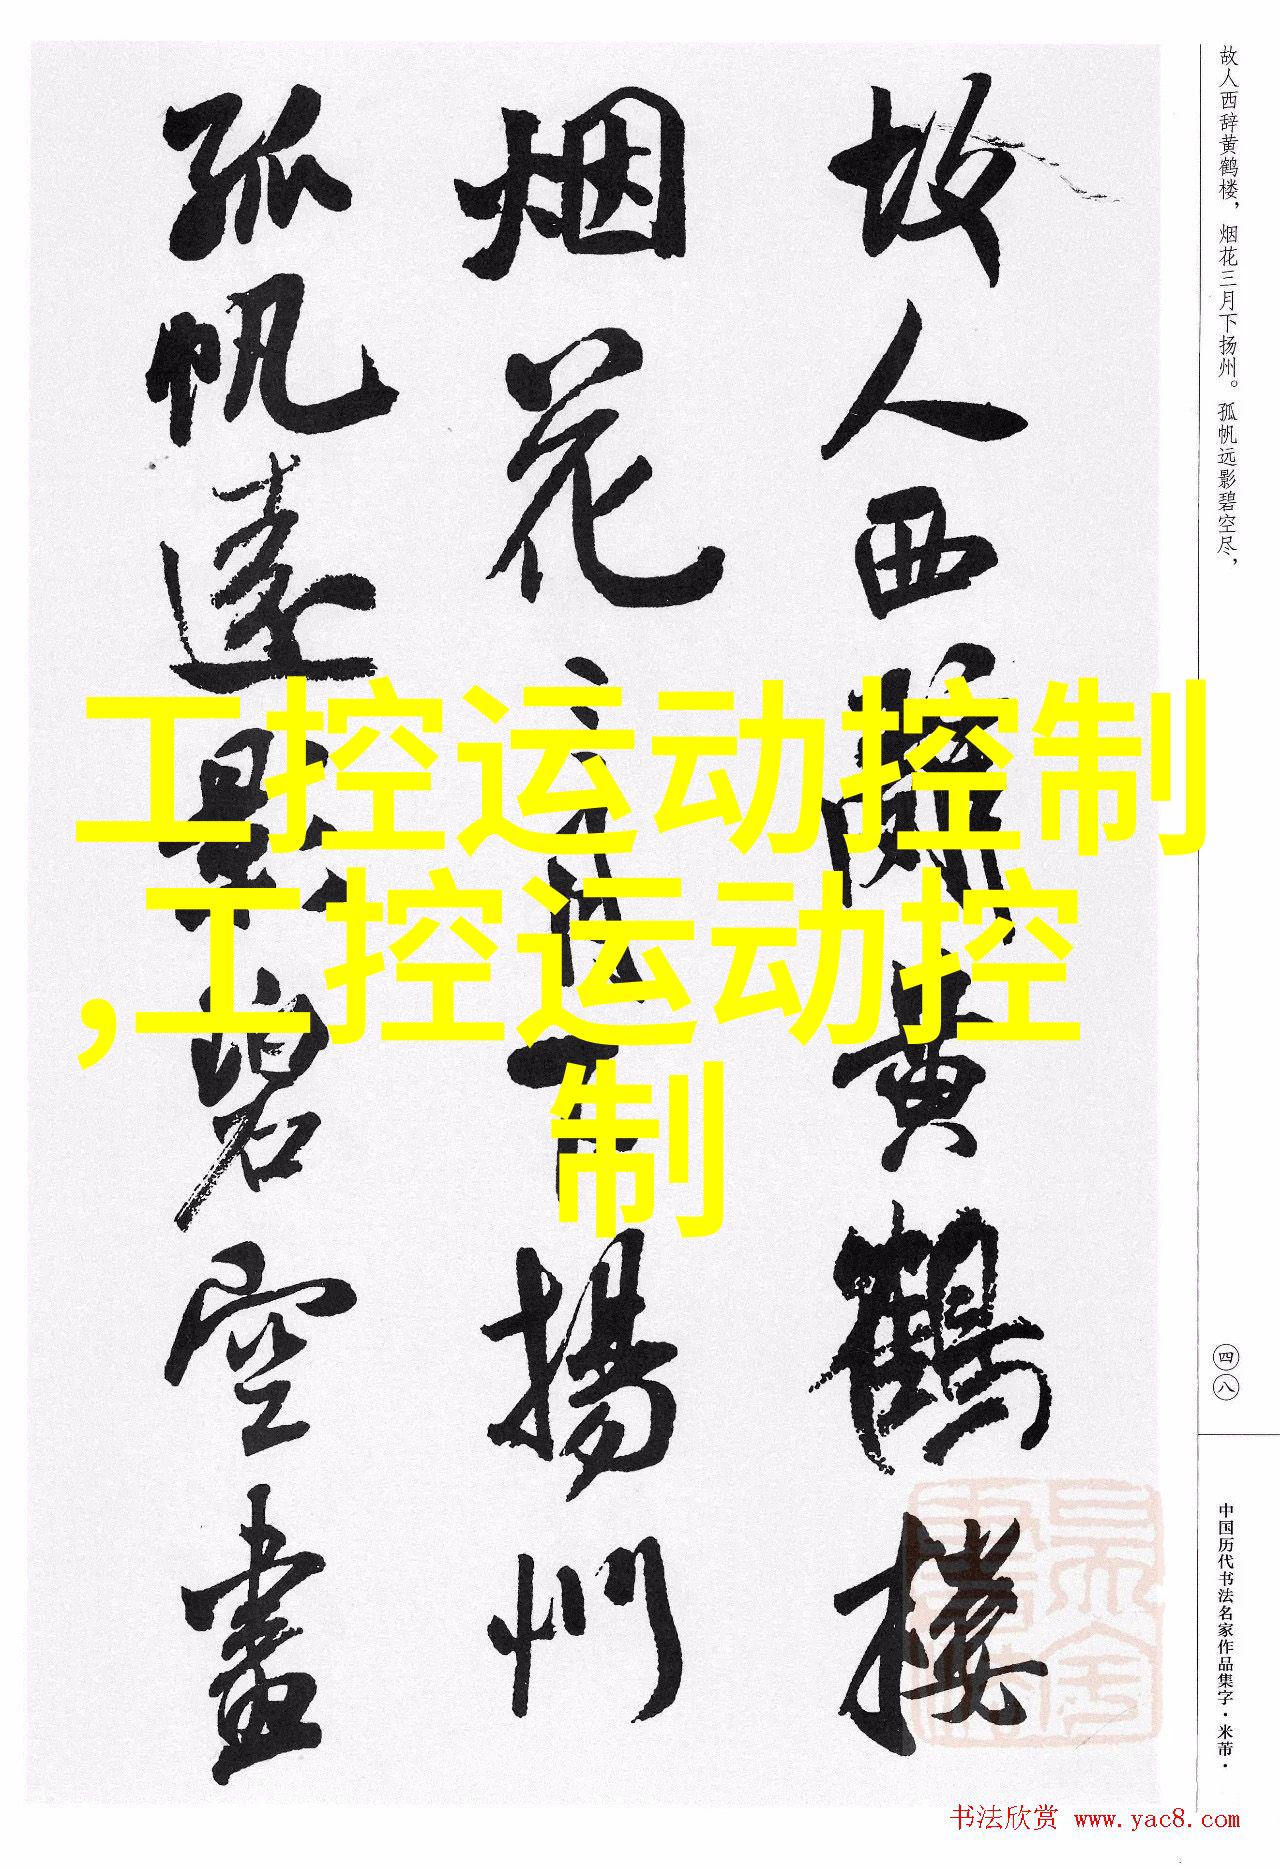 故人西辞黄鹤楼，烟花三月下扬州。孤帆远影碧空尽，
故人西辭黄鹤楼
烟花三月下揚州
孤帆遠影碧空盡
工控运动控制
,工控运动控
制
四八
中国历代书法名家作品集字·米芾·
书法欣赏 www.yac8.com